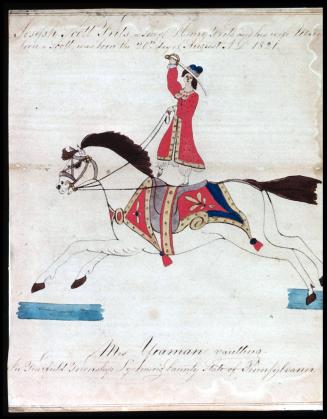 Joseph Scott Fritz, a son of Henry Fritz and his wife
born a Scott, was born the 20th day of August A.D. 1821
Mrs Yeaman vaulting
In Fairfield Township Lycoming County State of Pennsylvania